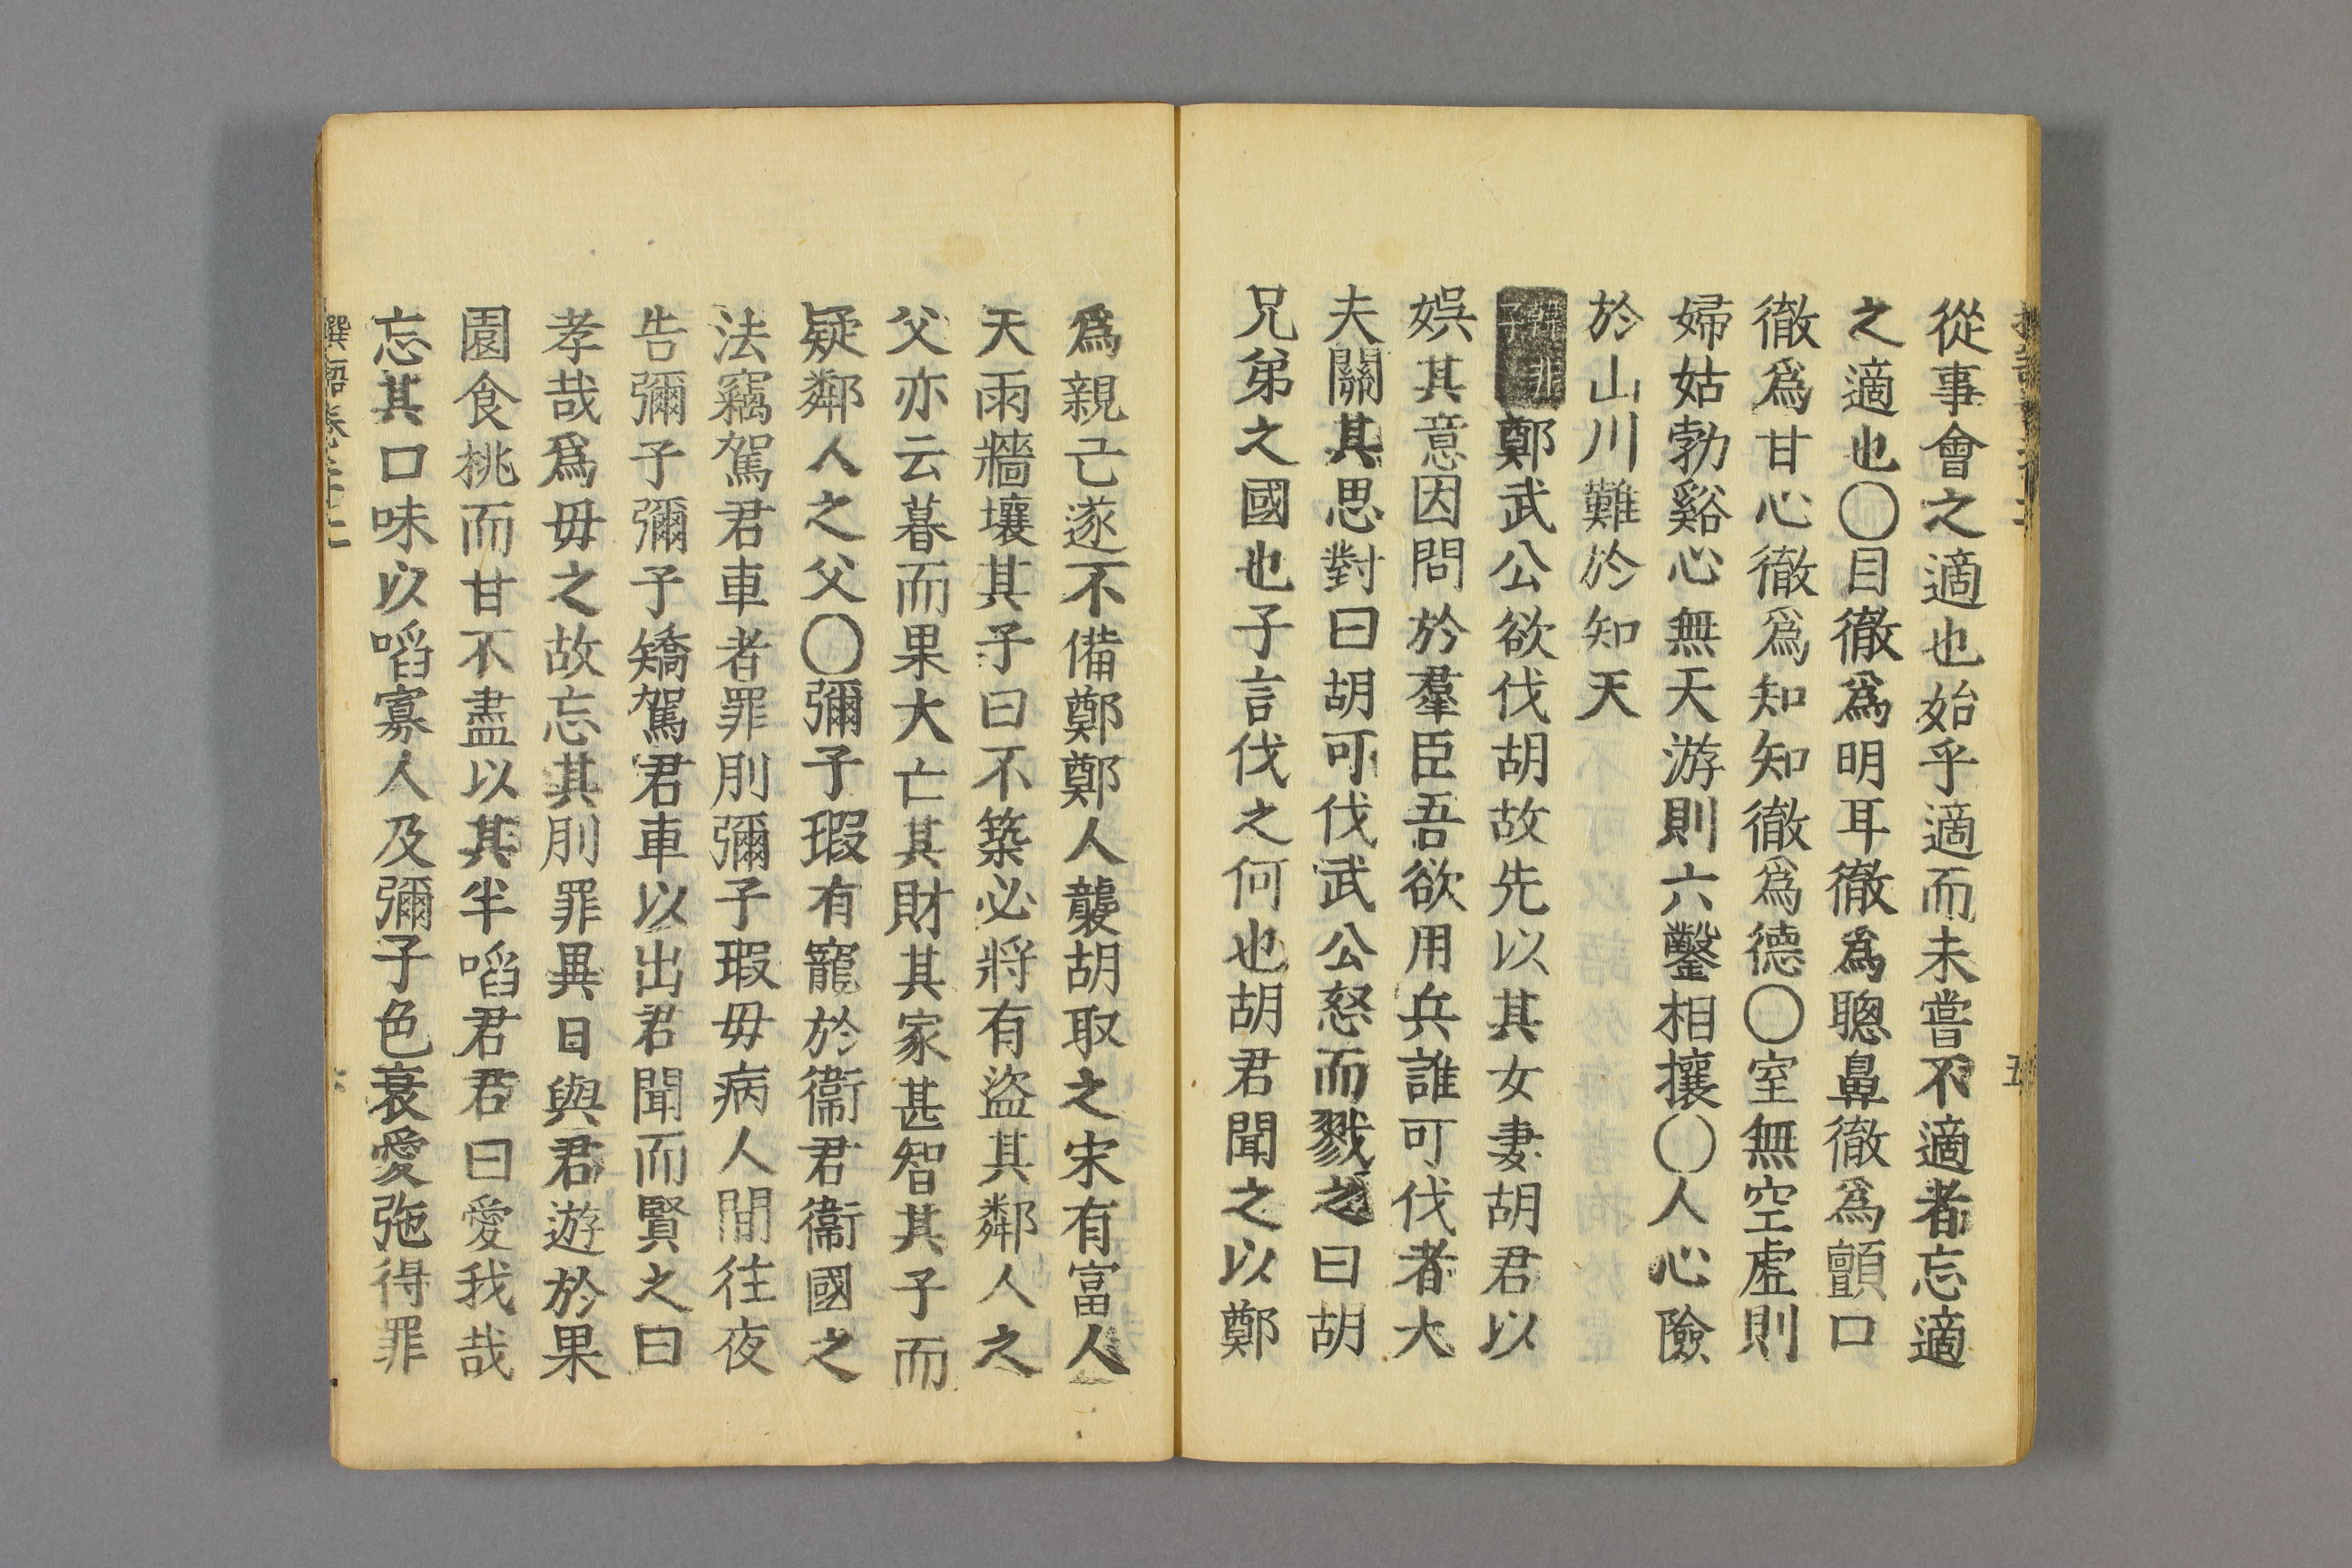 從事會之適也始乎適而未嘗不適者忘適
之適也〇目徹爲明耳徹爲聰鼻徹爲顫口
徹爲甘心徹爲知知徹爲德〇室無空虛則
婦姑勃谿心無天游則六鑿相攘〇人心險
於山川難於知天
韓非子鄭武公欲伐胡故先以其女妻胡君以
娯其意因問於羣臣吾欲用兵誰可伐者大
夫關其思對曰胡可伐武公怒而戮之曰胡
兄弟之國也子言伐之何也胡君聞之以鄭
爲親己遂不備鄭鄭人襲胡取之宋有富人
天雨牆壤其子曰不築必將有盜其鄰人之
父亦云暮而果大亡其財其家甚智其子而
疑鄰人之父〇彌子瑕有寵於衞君衞國之
法竊駕君車者罪刖彌子瑕毋病人間往夜
告彌子彌子矯駕君車以出君聞而賢之曰
孝哉爲毋之故忘其刖罪異日與君遊於果
園食桃而甘不盡以其半啗君君曰愛我哉
忘其口味以啗寡人及彌子色衰愛弛得罪